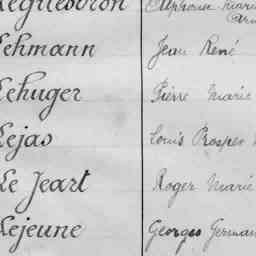 Lehmann Jean René
Lehuger Pierre Marie
Lejas Louis Prosper
Le Jeart Roger Marie
Lejeune Georges Germain